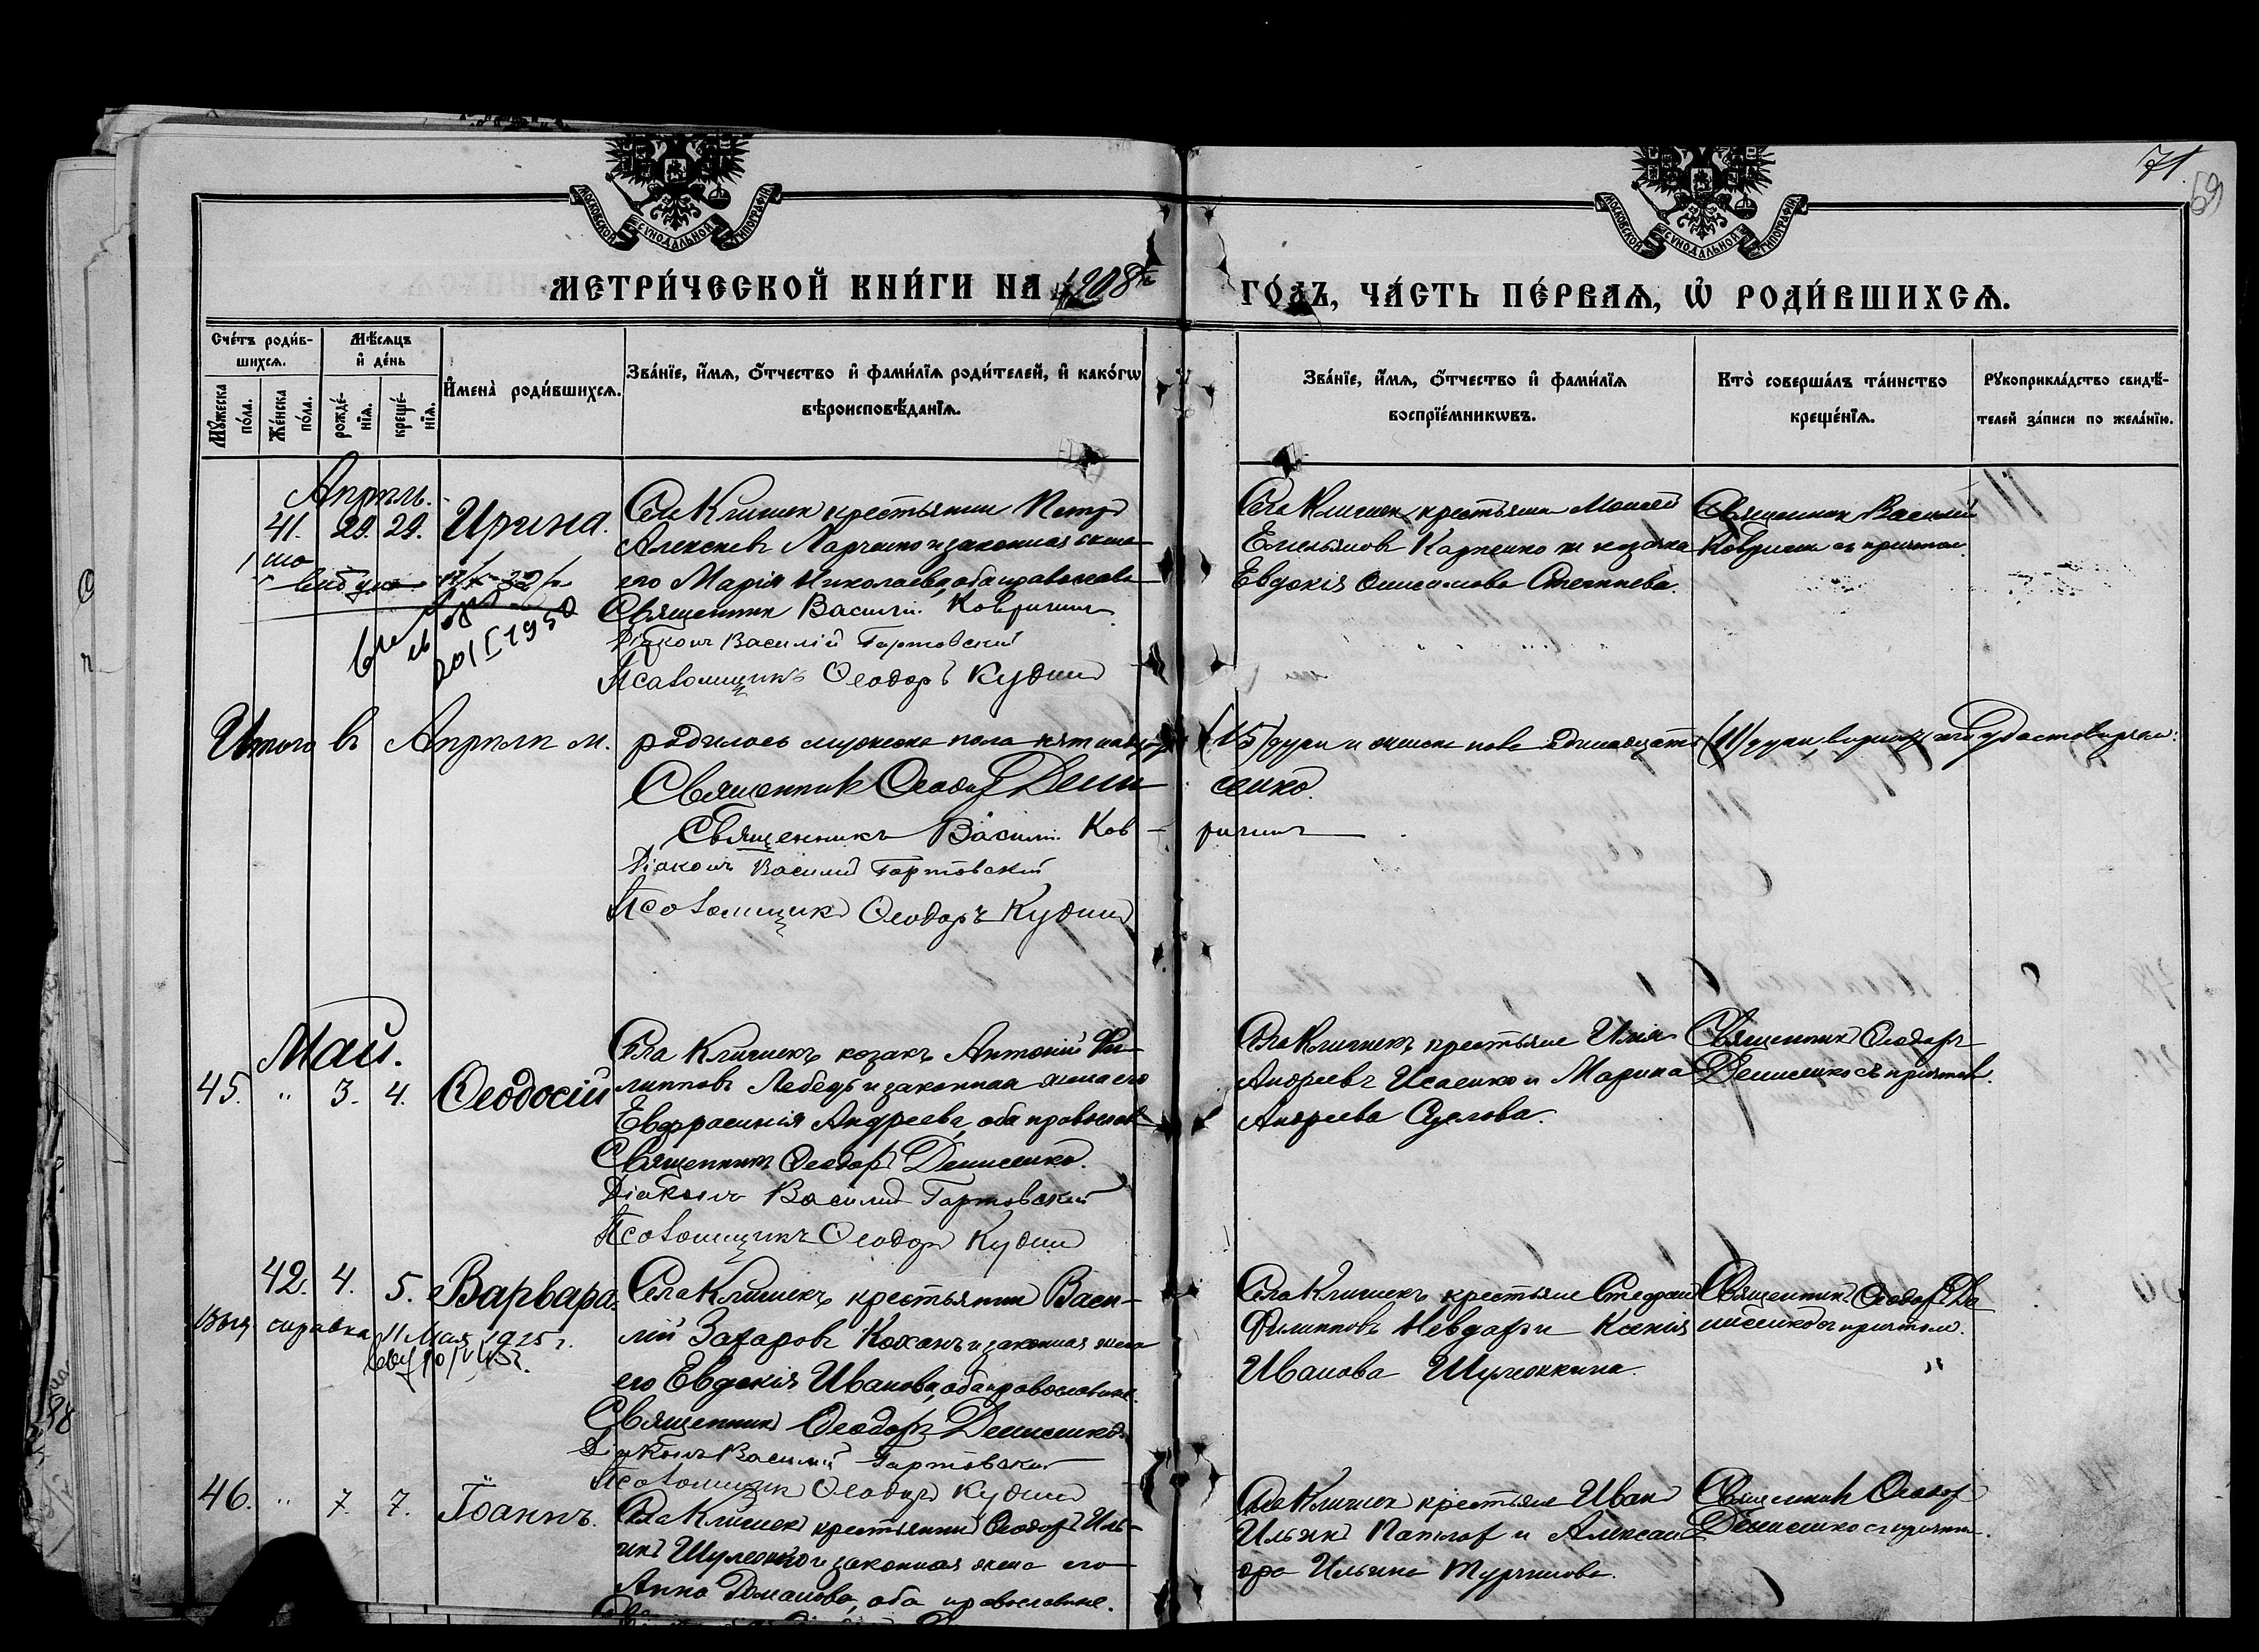 71
69
МОСКОВСКОЙ СУНОДАЛЬНОЙ ТИПОГРАФІИ
МОСКОВСКОЙ СУНОДАЛЬНОЙ ТИПОГРАФІИ
МЕТРИ́ЧЕСКОЙ КНИ́ГИ НА 1908й
ГО́ДЪ, ЧА́СТЬ ПЕ́РВАѦ, Ѡ҆ РОДИ́ВШИХСѦ.
Сче́тъ роди́в-
шихсѧ.
Мѣ́сѧцъ
и҆ де́нь
Мꙋ́жеска по́ла.
Же́нска по́ла.
рожде́-
нїѧ.
креще́-
нїѧ.
И҆мена̀ роди́вшихсѧ.
Зва́нїе, и҆́мѧ, ѻ҆́тчество и҆ фами́лїѧ роди́телей, и҆ како́гѡ
вѣроисповѣ́данїѧ.
Зва́нїе, и҆́мѧ, ѻ҆́тчество и҆ фами́лїѧ
воспрїе́мникѡвъ.
Кто̀ соверша́лъ та́инство
креще́нїѧ.
Рꙋкоприкла́дство свидѣ́-
телей за́писи по жела́нїю.
Апрѣль.
41. 29. 29. Ирина.
Села Клишек крестьянин Петр
Алексеевъ Марченко и законная жена
его Марія Николаева, оба правосла
Священник Василій Ковригин
Діаконъ Василій Гортовскій
Псаломщикъ Ѳеодоръ Кудин
20/I 1950
Села Клишек крестьянин Моисей
Емельянов Карпенко и козачка
Евдокія Анисимова Степнева.
Священник Василій
Ковригин съ причтом.
Итого въ Апрѣлѣ м. родилось мужеска пола пятнадца (15) души и женска пола одинадцать (11) души,
Священник Ѳеодор Дени
сенко.
Священникъ Василій Ков-
ригинъ
Діаконъ Василій Гортовскій
Псаломщикъ Ѳеодоръ Кудин
Май.
45. " 3. 4. Ѳеодосій
Села Клишекъ козакъ Антоній Фи-
липповъ Лебедь и законная жена его
Евфросинія Андреева, оба православ
Священник Ѳеодор Денисенко.
Діаконъ Василій Гортовскій
Псаломщикъ Ѳеодор Кудин
Села Клишекъ крестьяне Илія
Андреевъ Исаенко и Марина
Андреева Суслова.
Священник Ѳеодоръ
Денисенко съ причтом.
42. 4. 5. Варвара.
справка 11 Мая 1925 г.
Села Клишекъ крестьянин Васи-
лій Захаровъ Коханъ и законная жена
его Евдокія Иванова, оба православные.
Священник Ѳеодоръ Денисенко
Діаконъ Василій Гортовскій
Псаломщик Ѳеодор Кудин
Села Клишекъ крестьяне Стефан
Филипповъ Невдах и Ксенія
Иванова Шумейкина.
Священник Ѳеодор Де
нисенко съ причтом.
"
46. " 7. 7. Іоаннъ.
Села Клишек крестьянин Ѳеодор Иль-
ин Шумейко и законная жена его
Анна Романова, оба православные.
Села Клишек крестьяне Иван
Ильин и Алексан
дра Ильина Турчинова.
Священник Ѳеодор
Денисенко с причтом.